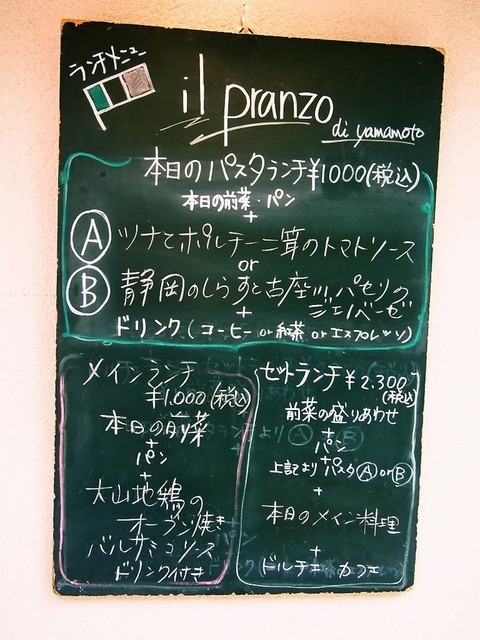 ランチメニュー
il pranzo
di yamamoto
本日のパスタランチ¥1000(税込)
本日の前菜・パン
+
Ⓐ ツナとポルチーニ茸のトマトソース
or
Ⓑ 静岡のしらすと古座川パセリの
ジェノベーゼ
+
ドリンク(コーヒー or 紅茶 or エスプレッソ)
メインランチ
¥1,000(税込)
本日の前菜
+
パン
+
大山地鶏の
オーブン焼き
バルサミコソース
ドリンク付き
セットランチ¥2,300
(税込)
前菜の盛りあわせ
+
パン
+
上記よりパスタⒶorⒷ
+
本日のメイン料理
+
ドルチェ カフェ